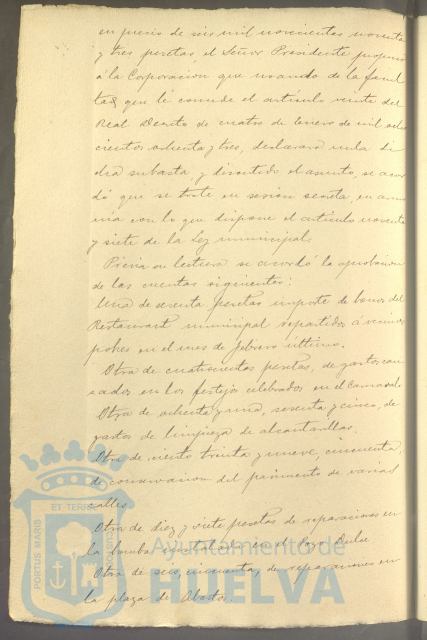 en precio de seis mil novecientas noventa
y tres pesetas, el Señor Presidente propuso
á la Corporacion que usando de la facul
tad que le concede el artículo veinte del
Real Decreto de cuatro de Enero de mil ocho
cientos ochenta y tres, declarara nula di
cha subasta, y discutido el asunto, se acor
dó que se trate en sesion secreta, en armo
nia con lo que dispone el artículo noventa
y siete de la Ley municipal.
Previa su lectura se acordó la aprobacion
de las cuentas siguientes:
Una de sesenta pesetas importe de bonos del
Restaurant municipal repartidos á vecinos
pobres en el mes de Febrero último.
Otra de cuatrocientas pesetas, de gastos cau
sados en los festejos celebrados en el Carnaval.
Otra de ochenta y una, sesenta y cinco, de
gastos de limpieza de alcantarillas.
Otra de ciento treinta y nueve, cincuenta,
de conservacion del pavimento de varias
calles.
Otra de diez y siete pesetas de reparaciones en
la bomba instalada en el Pozo Dulce
Otra de seis, cincuenta, de reparaciones en
la plaza de Abastos.
PORTUS MARIS ET TERRAE
Ayuntamiento de
HUELVA